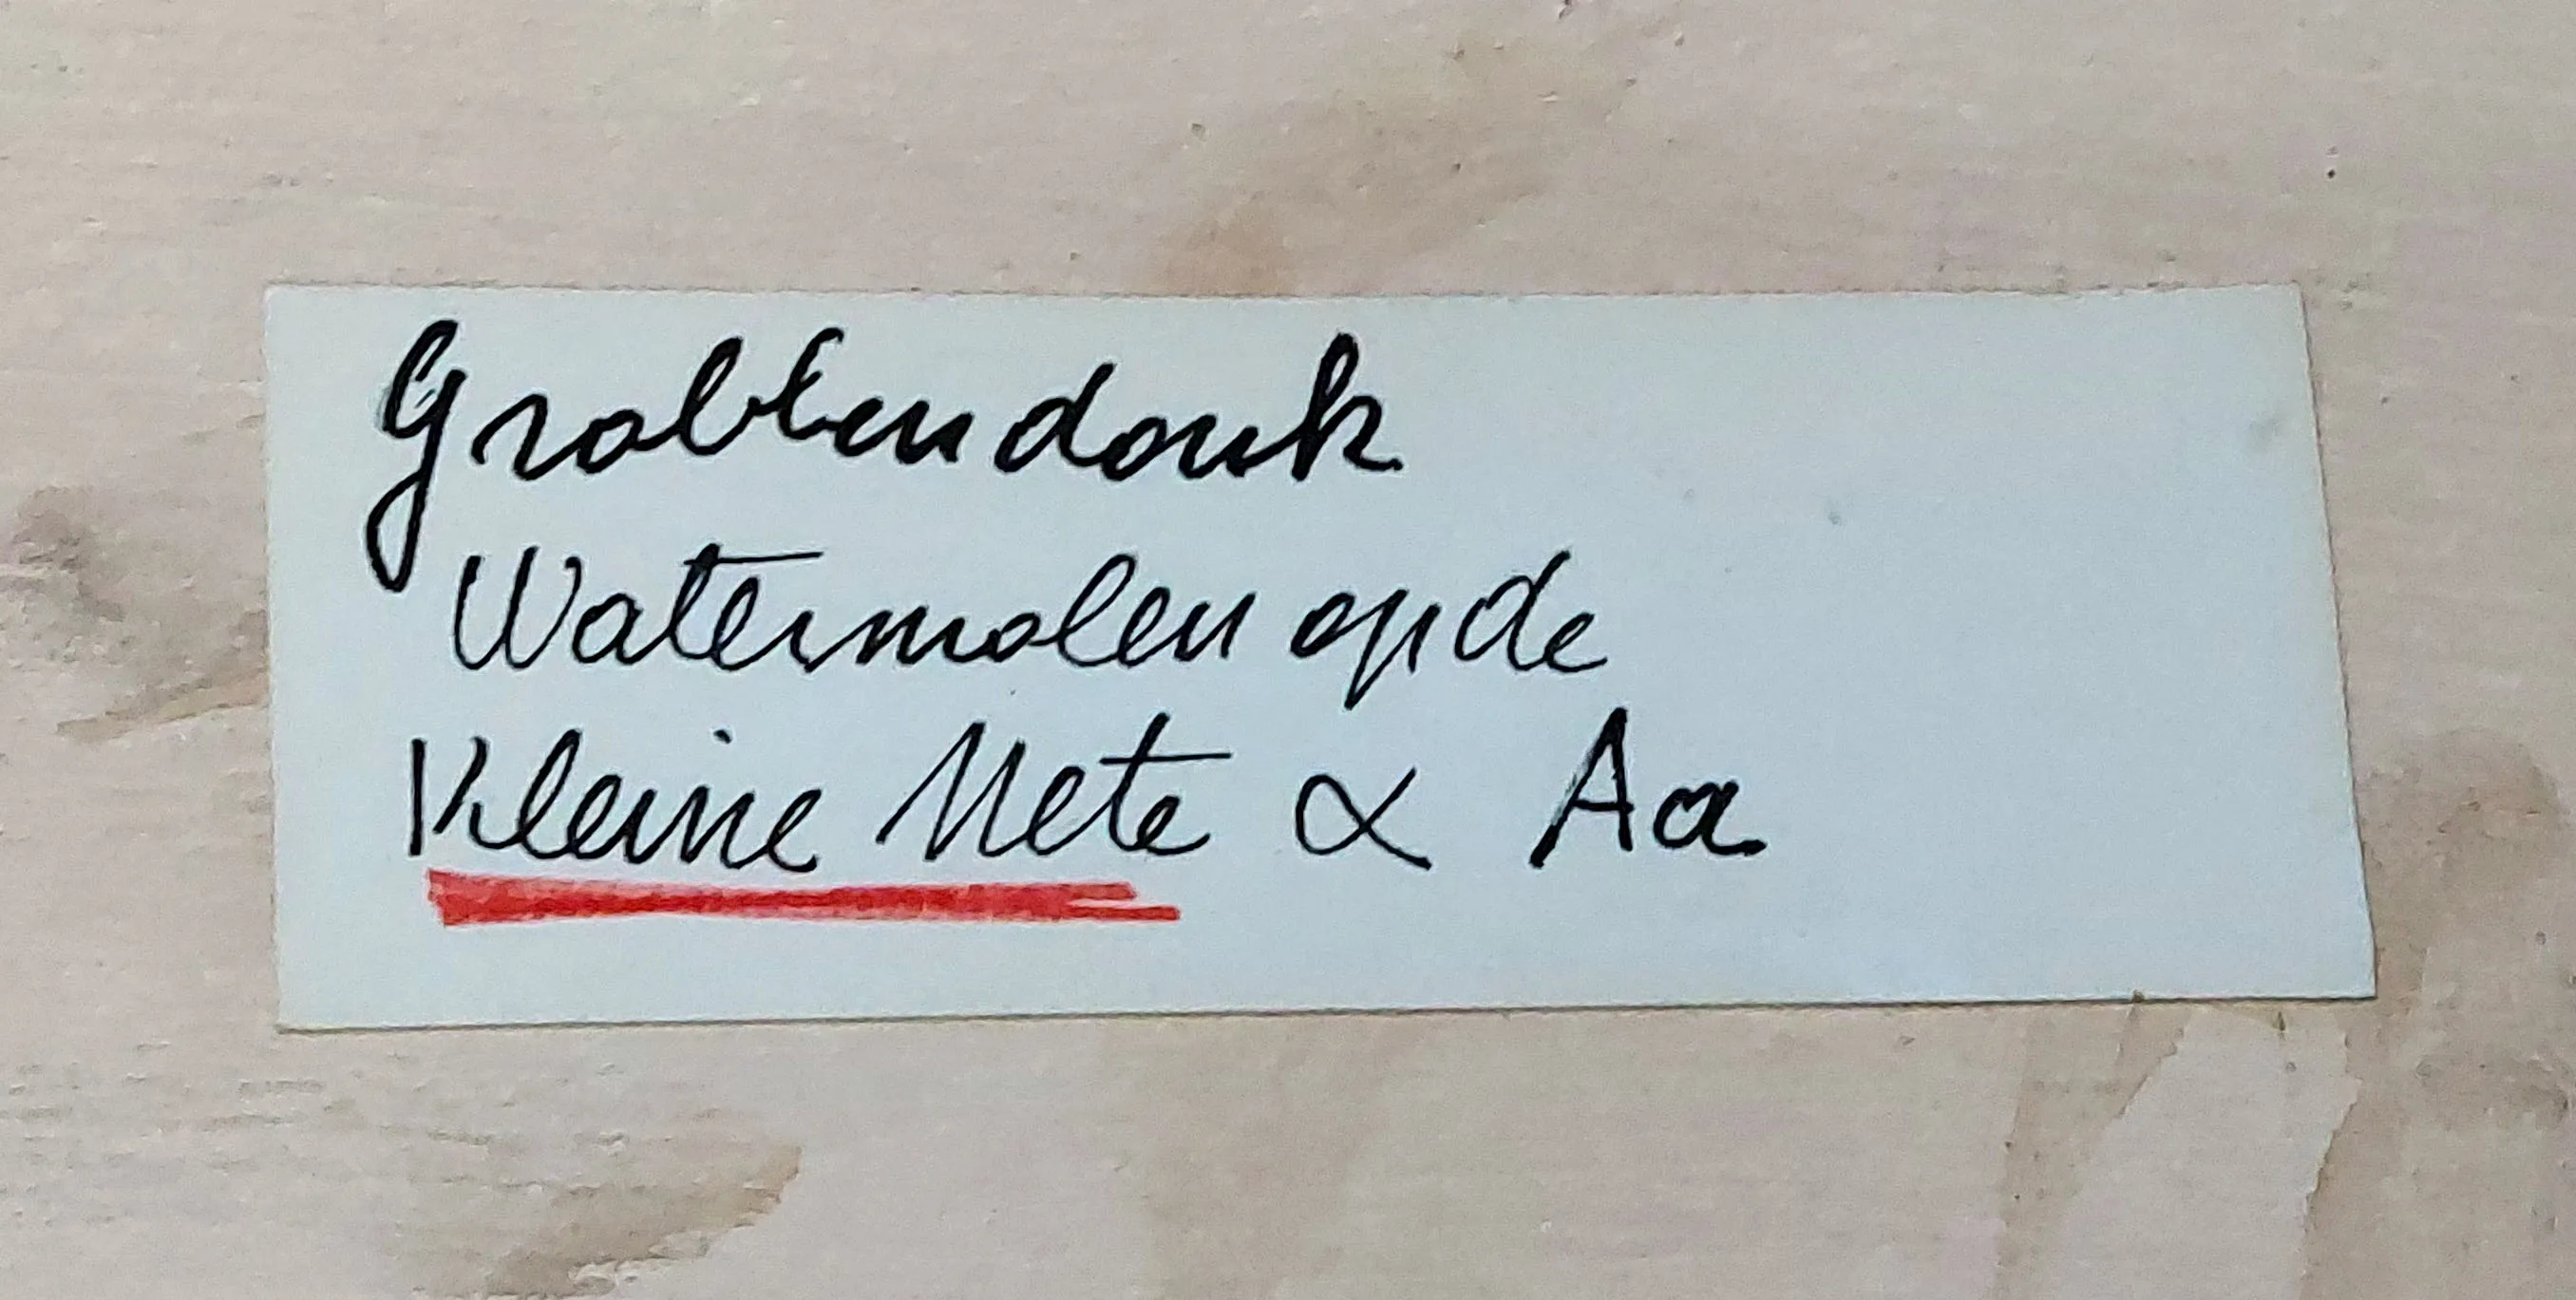 Grobbendonk
Watermolen op de
Kleine Nete & Aa